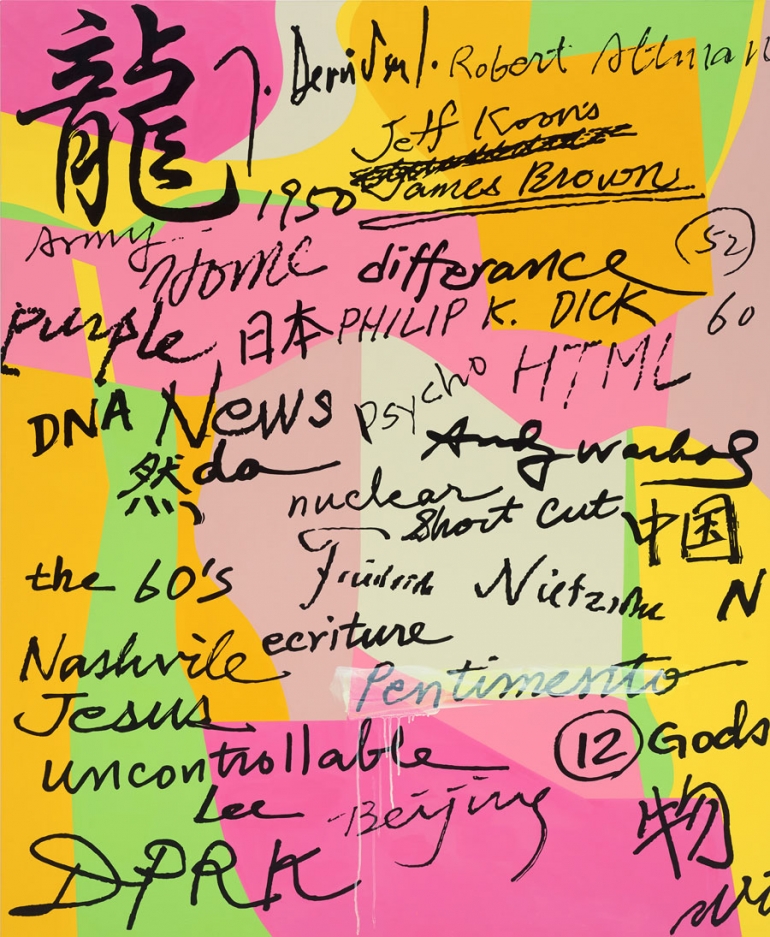 龍 J. Robert Altman
Jeff Koons
James Brown
1950
Army
Home differance 52
purple 日本 PHILIP K. DICK 60
psycho HTML
DNA News
Andy Warhol
然 da
nuclear
Short cut 中国
the 60's Nietzsche N
ecriture
Nashvile
Pentimento
Jesus
uncontrollable 12 Gods
Lee Beijing 物
DPRK